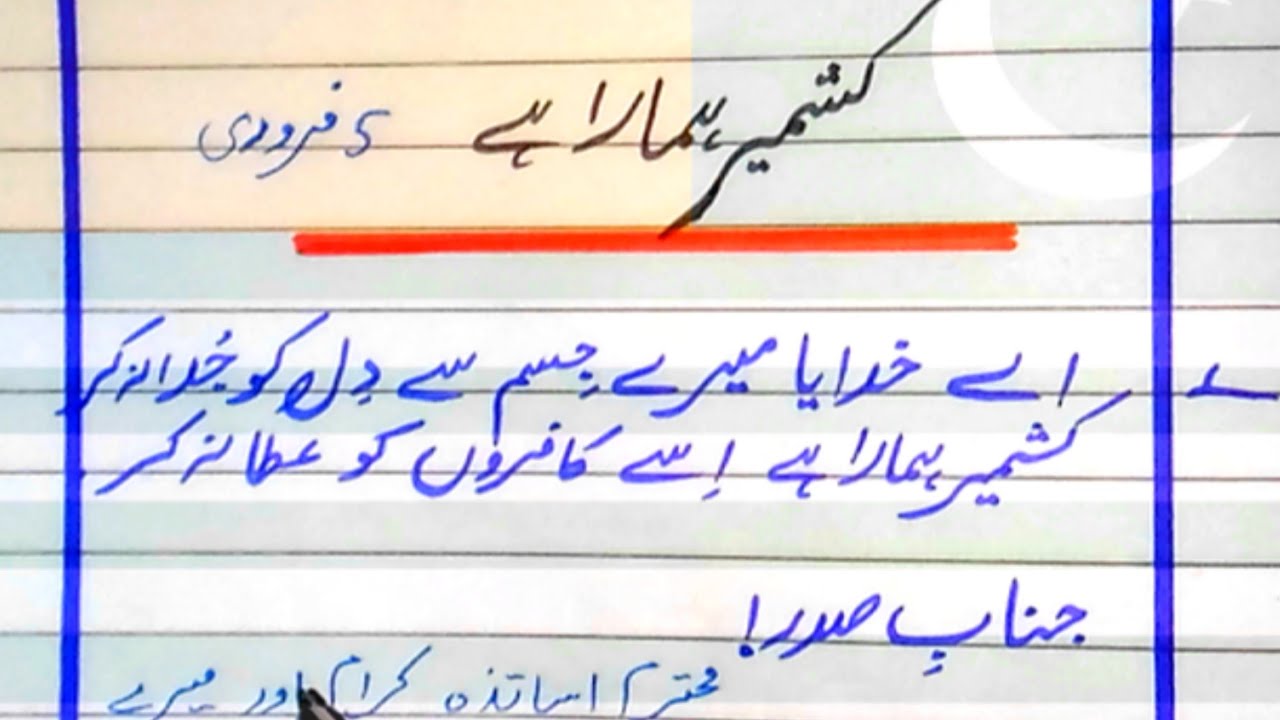 کشمیر ہمارا ہے 5 فروری
اے خدایا میرے جِسم سے دِل کو جُدا نہ کر
کشمیر ہمارا ہے اِسے کافروں کو عطا نہ کر
جنابِ صدر!
محترم اساتذہ کرام اور میرے